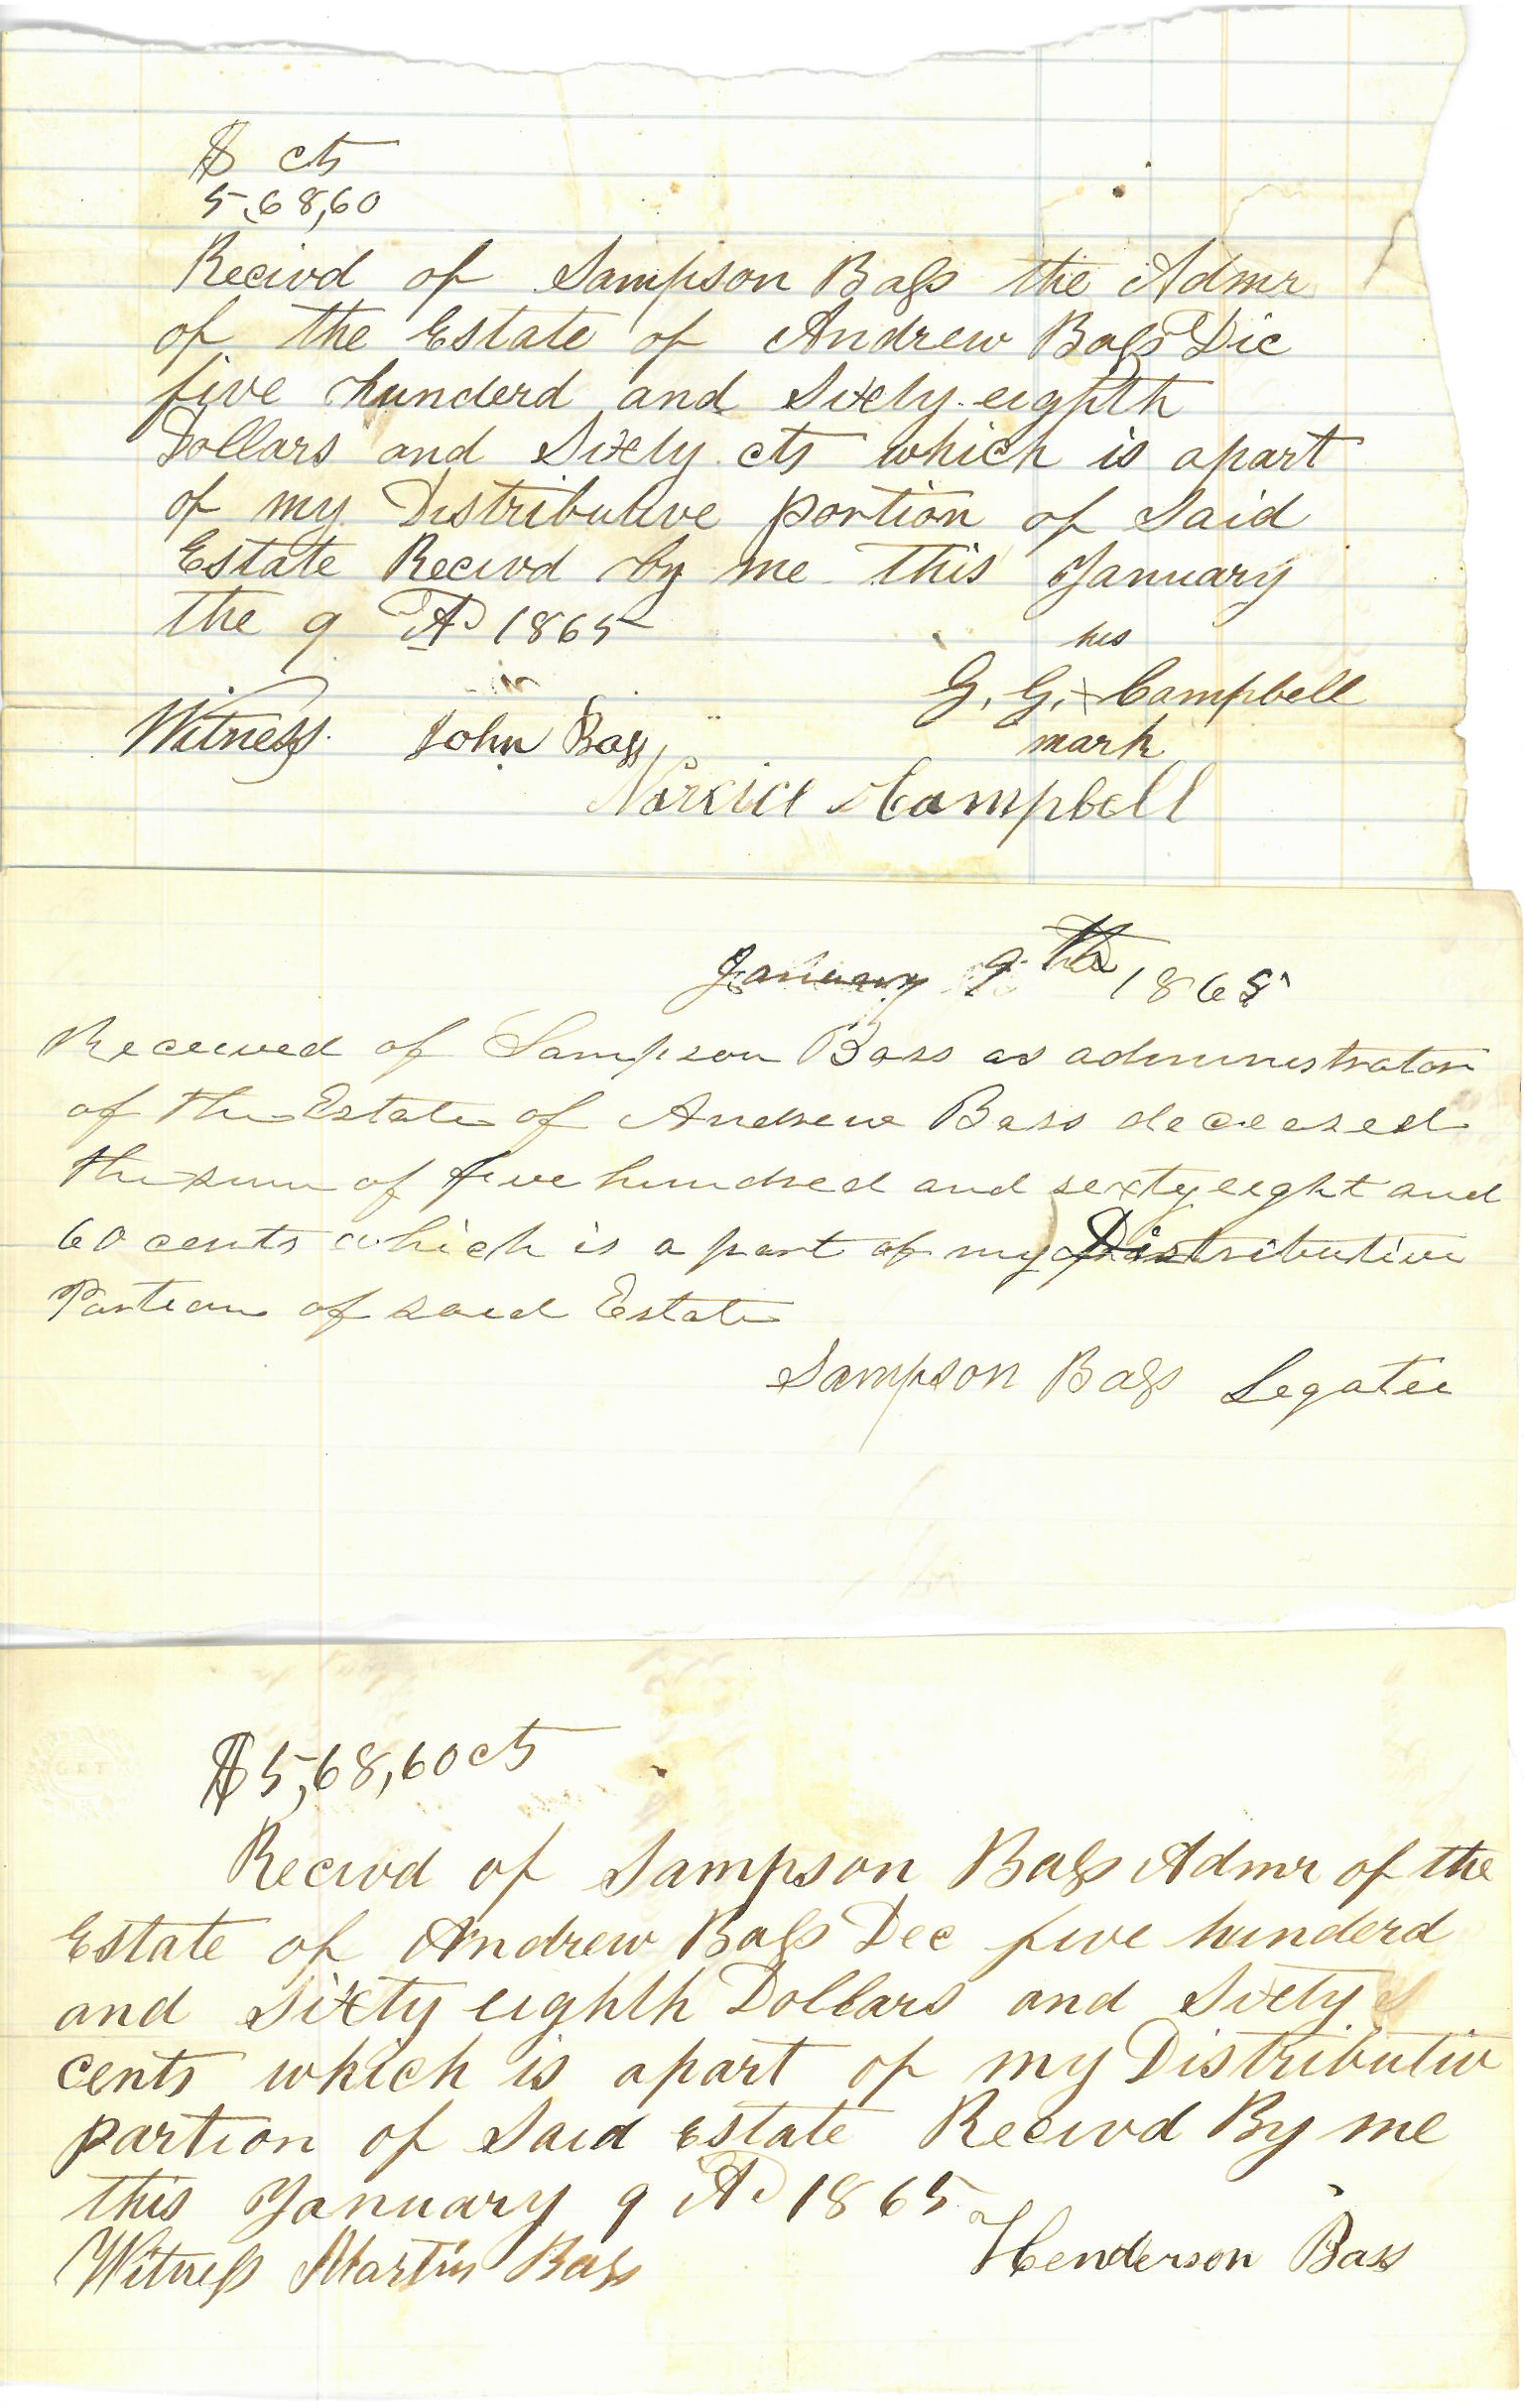 $ cts
5,68,60
Recivd of Sampson Bass the Admr
of the Estate of Andrew Bass Dic
five hunderd and Sixely eighth
Dollars and Sixely cts which is apart
of my Distributive portion of Said
Estate Recivd by me this January
the 9 AD 1865
his
G. G. x Campbell
Witness John Bass mark
Campbell
January 9th 1865
Received of Sampson Bass as administrator
of the Estate of Andrew Bass deceased
the sum of five hundred and sixty eight and
60 cents which is a part of my Distributive
Portion of said Estate
Sampson Bass Legatee
$5,68,60 cts
Recivd of Sampson Bass Admr of the
Estate of Andrew Bass Dec five hunderd
and Sixty eighth Dollars and Sixty
cents which is apart of my Distributiv
partion of Said Estate Recivd By me
this January 9 AD 1865
Henderson Bass
Witness Martin Bass